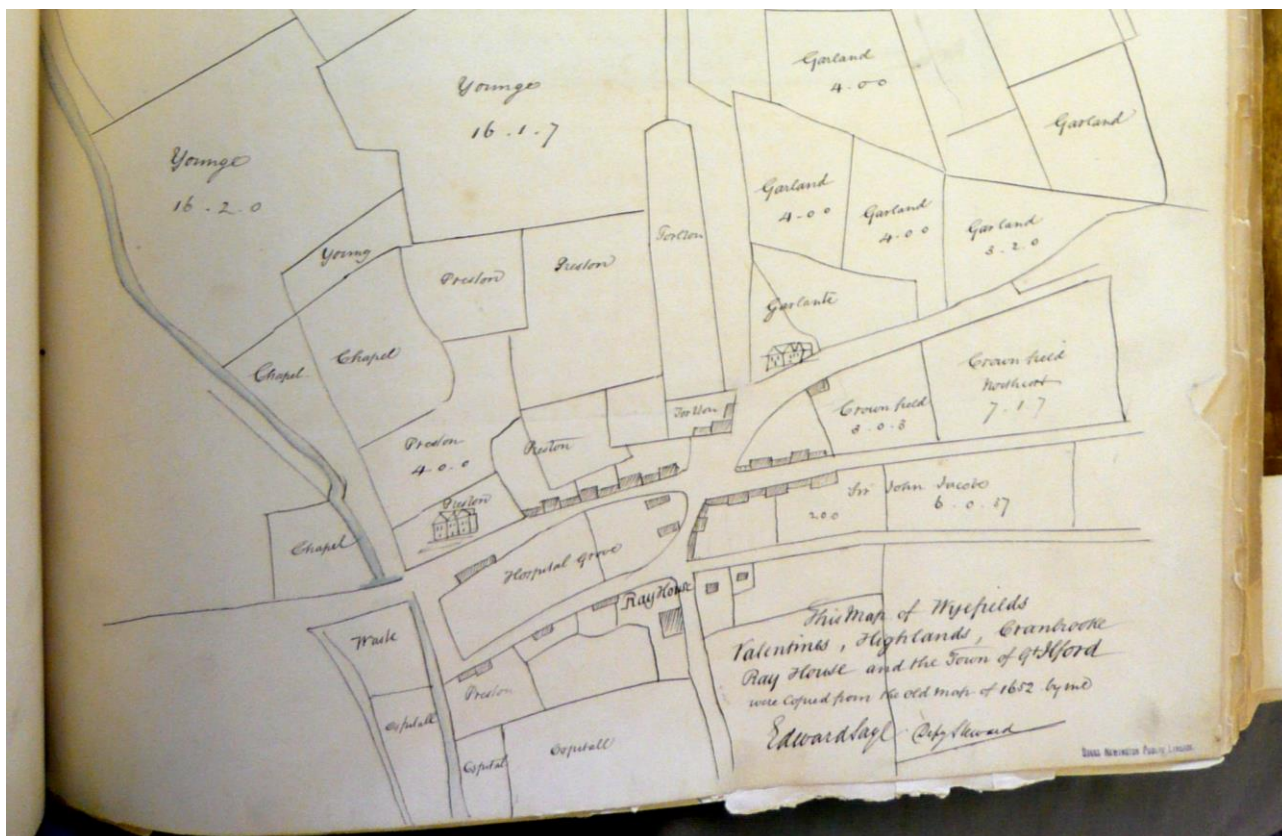 Garland
4-0-0
Younge
16-1-7
Garland
Younge
16-2-0
Garland
4-0-0
Garland
4-0-0
Garland
3-2-0
Young
Preston
Preston
Garlante
Chapel
Chapel
Crownfield
Northcott
7-1-7
Crownfield
Preston
4-0-0
Preston
Preston
Sir John Jacobe
6-0-37
200
Chapel
Hospital Grove
Ray House
Waste
Preston
Ospitall
Ospital
Ospitall
This Map of Wyefields
Valentines, Highlands, Cranbrooke
Ray House and the Town of Gt Ilford
were copied from the old map of 1652 by me
Edward Sayl Depy Steward